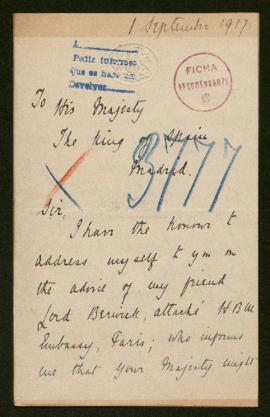 1 September 1917.
A
Pedir informes
Que se haga
Devolver
FICHA
RECOMENDARTE
To His Majesty
The King of Spain
Madrid.
X 3777
Sir,
I have the honour to
address myself to you on
the advice of my friend
Lord Berwick, attaché H B M
Embassy, Paris; who informs
me that Your Majesty might